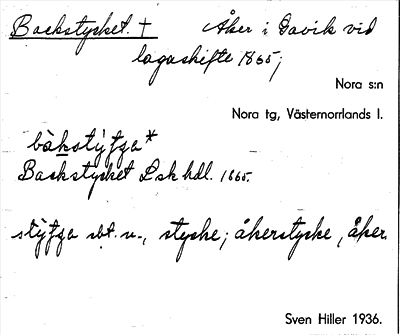 Backstycket. † Åker i Gavik vid
lagaskifte 1865;
Nora s:n
Nora tg, Västernorrlands l.
bàkstýʃʒa*
Backstycket Lsk hdl. 1865.
stýʃʒa sbt. n., stycke; åkerstycke, åker.
Sven Hiller 1936.